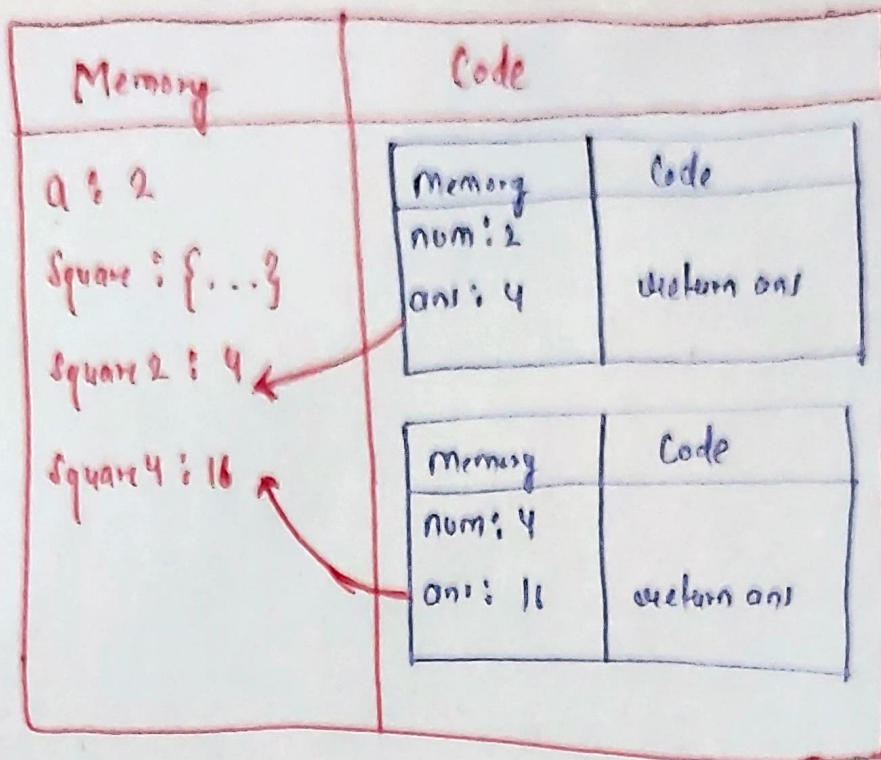 Memory
Code
a : 2
square : {...}
square2 : 4
square4 : 16
Memory
Code
num : 2
ans : 4
return ans
Memory
Code
num : 4
ans : 16
return ans